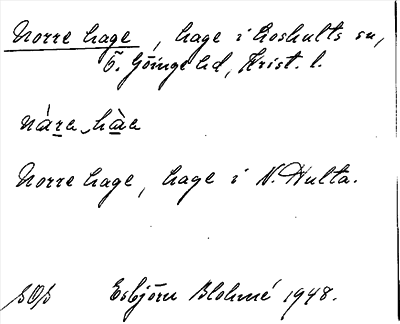 Norre hage, hage i Loshults sn,
Ö. Göinge hd, Krist. l.
nàra hàa
Norre hage, hage i N. Hulta.
Esbjörn Blohmé 1948.